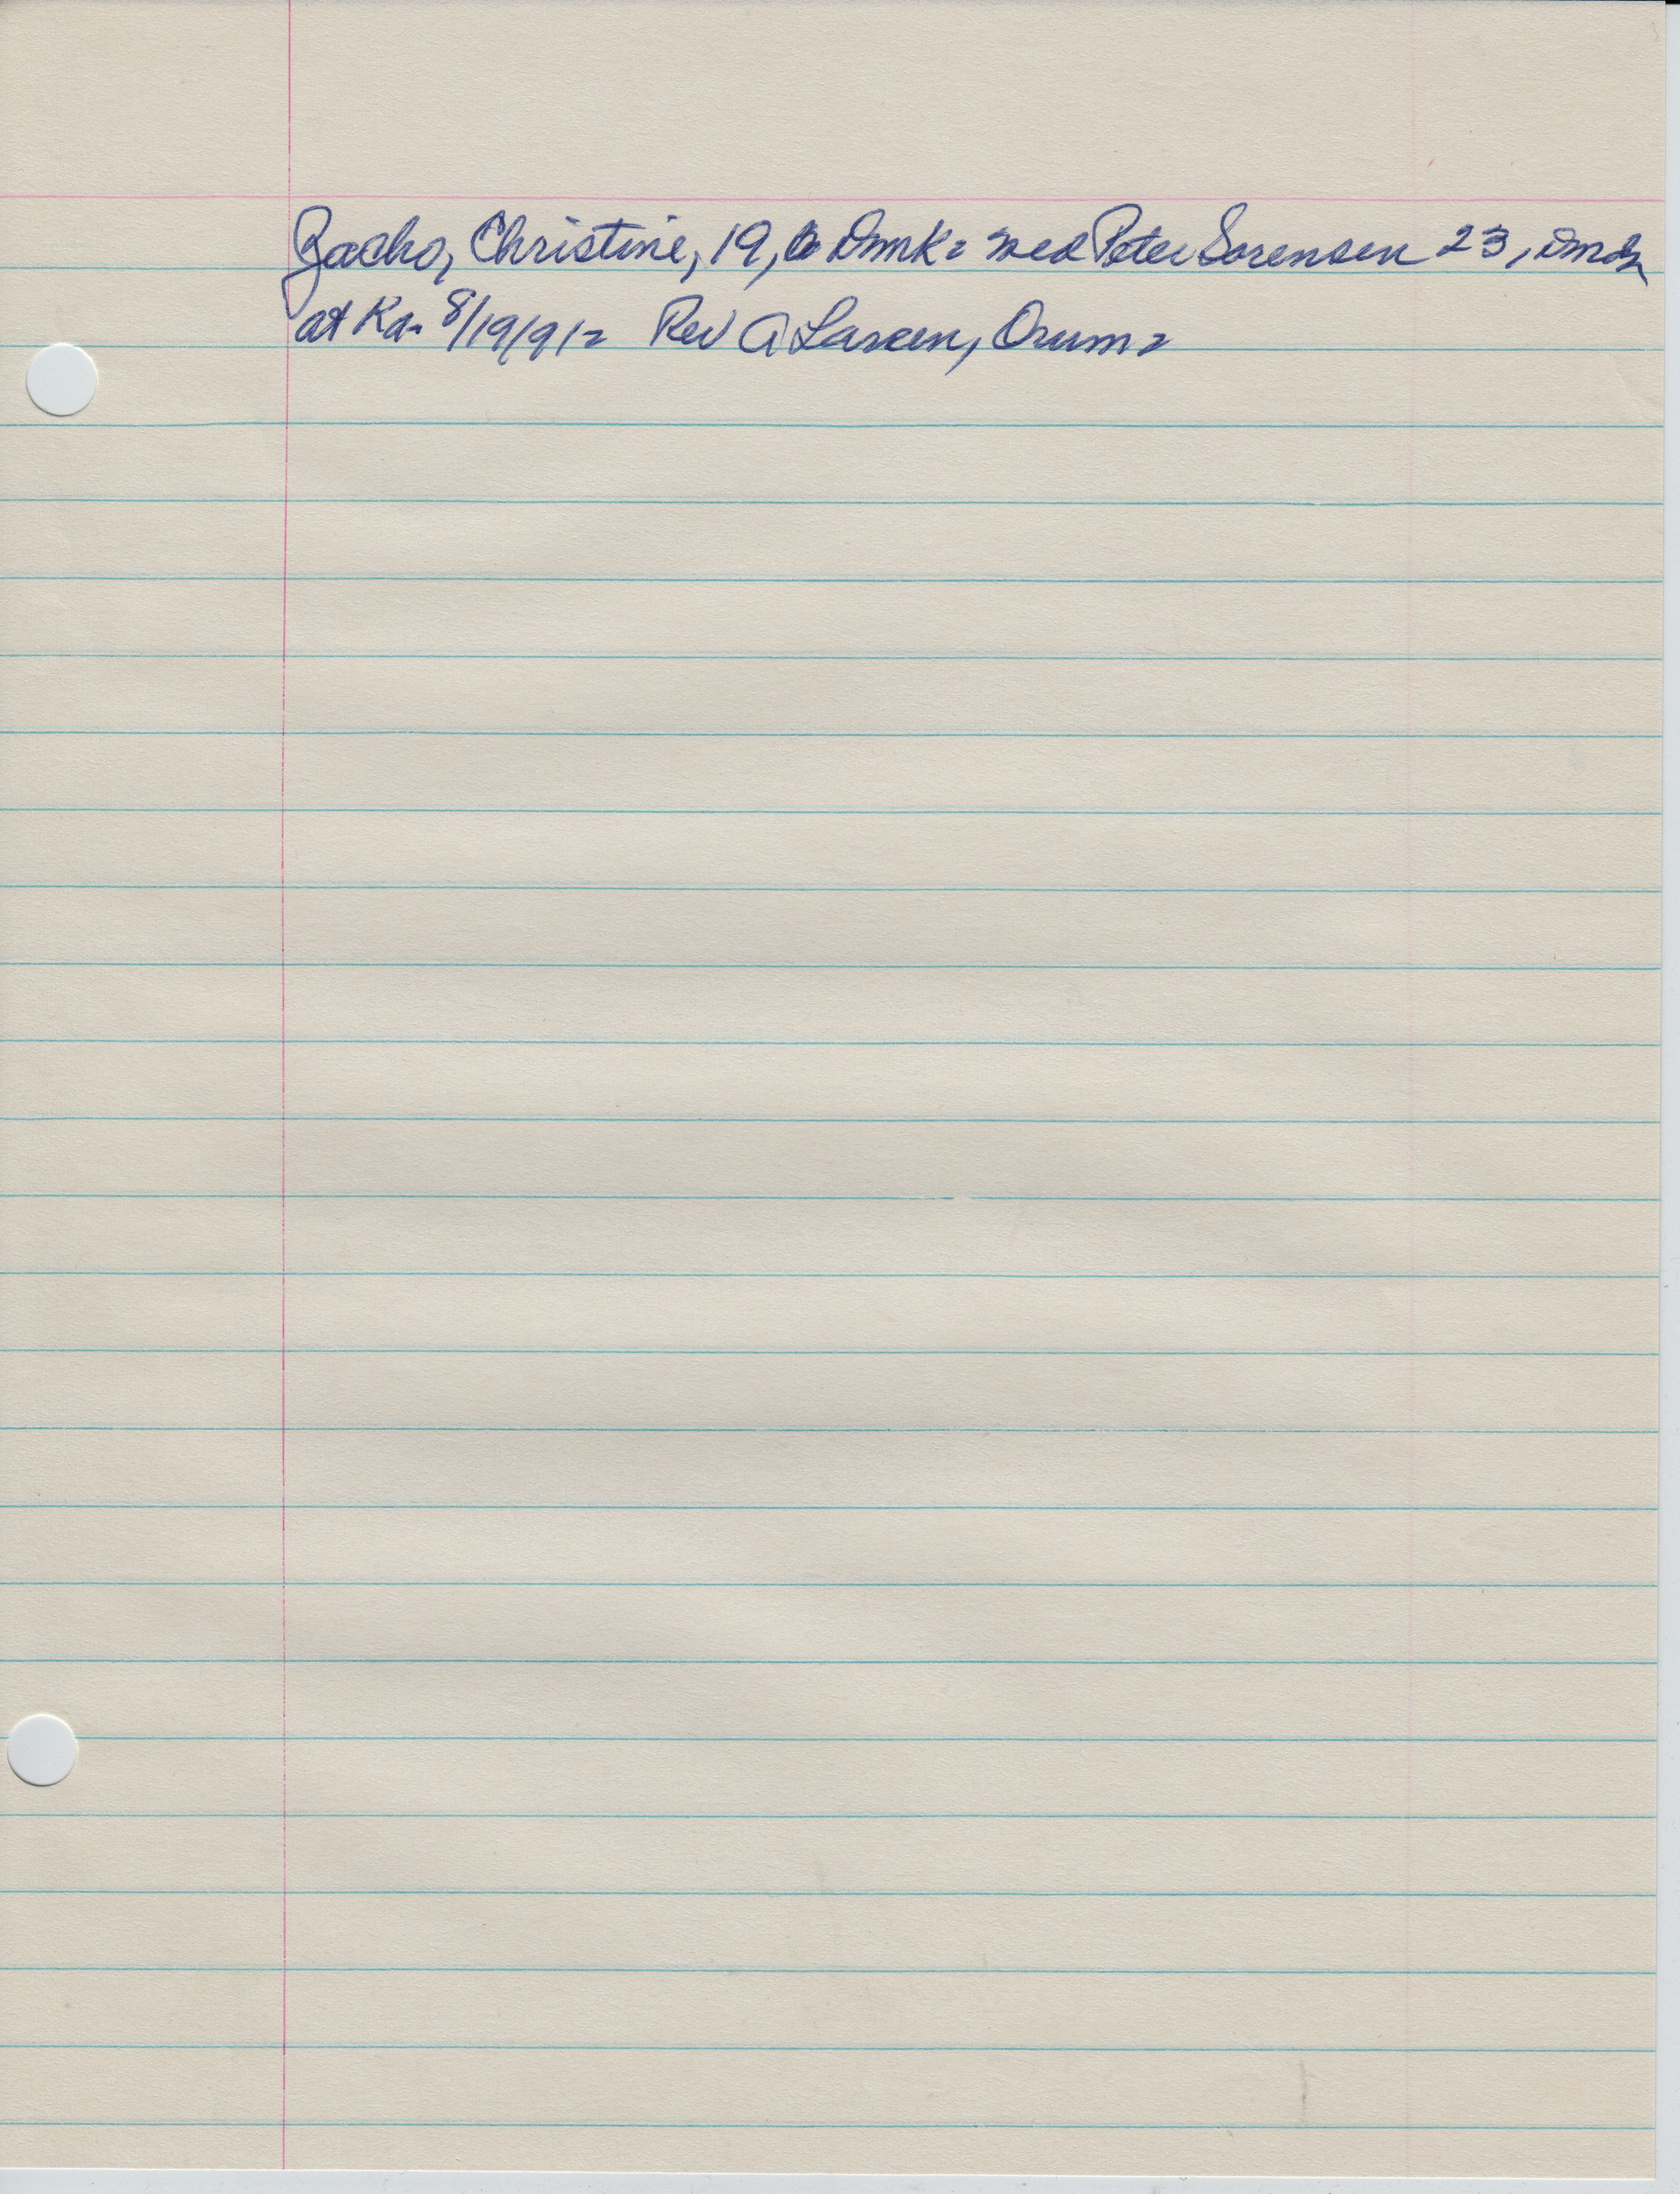 Zacho, Christine, 19, b Dnmk= wed Peter Sorensen 23, Dmk
at Ka- 8/19/91= Rev A Larsen, Orum=